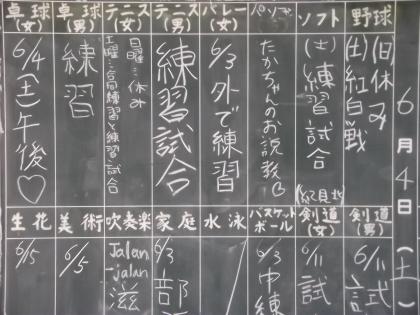 6月4日(土)
野球
(日)休み
(土)紅白戦
ソフト
(土)練習試合
バレー
6/3外で練習
たかちゃんのお説教
テニス(男)
練習試合
テニス(女)
日曜…休み
土曜…合同練習と練習試合
卓球(男)
練習
卓球(女)
6/4(土)午後♡
剣道(男)
6/11試
剣道(女)
6/11試
バスケットボール
6/3中練
水泳
家庭
6/3部
吹奏楽
Jalan-jalan
滋
美術
6/5
生花
6/15